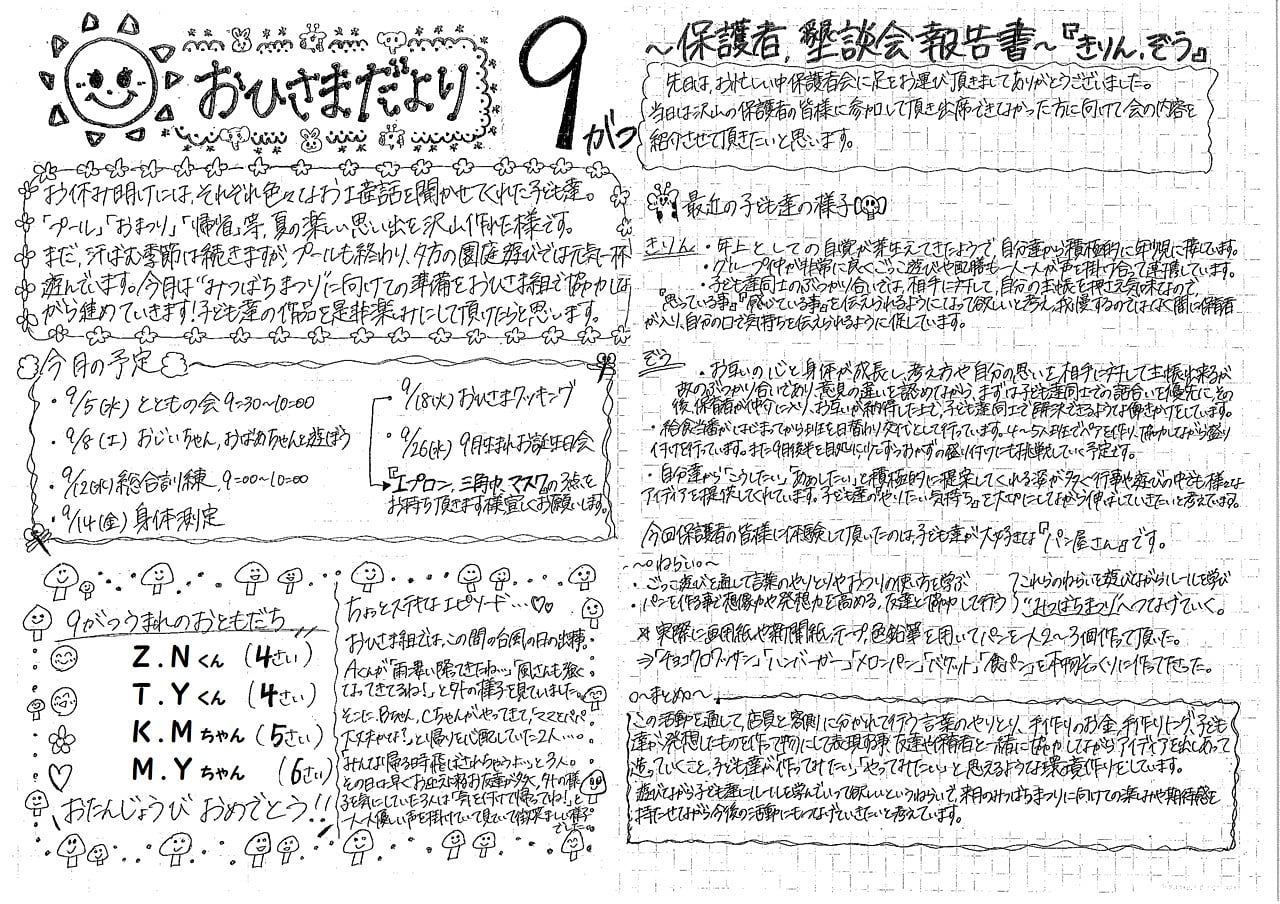 おひさまだより
9がつ
お休み明けには、それぞれ色々なお土産話を聞かせてくれた子ども達。
「プール」「おまつり」「帰省」等、夏の楽しい思い出を沢山作れた様です。
まだ、汗ばむ季節は続きますが、プールも終わり、夕方の園庭遊びでは元気一杯
遊んでいます。今月は"みつばちまつり"に向けての準備をおひさま組で協力しな
がら進めていきます!子ども達の作品を是非楽しみにして頂けたらと思います。
今月の予定
・9/5(水) とともの会 9:30~10:00
・9/8(土) おじいちゃん、おばあちゃんと遊ぼう
・9/12(水) 総合訓練、9:00~10:00
・9/14(金) 身体測定
・9/18(火) おひさまクッキング
・9/26(水) 9月生まれお誕生日会
『エプロン、三角巾、マスク』の3点を
お持ち頂きます様宜しくお願いします。
9がつうまれのおともだち
Z.Nくん (4さい)
T.Yくん (4さい)
K.Mちゃん (5さい)
M.Yちゃん (6さい)
おたんじょうび おめでとう!!
ちょっとステキなエピソード…♡♡
おひさま組では、この間の台風の日の出来事。
Aくんが「雨凄い降ってきたね…」「風さんも強く
なってきてるね!」と外の様子を見ていました。
そこに、Bちゃん、Cちゃんがやってきて、「ママとパパ
大丈夫かな?」と帰りを心配していた2人…。
「みんな帰る時飛ばされちゃうよ…」と3人。
その日は早くお迎えに来るお友達が多く、外の様
子を気にしていた3人は「気を付けて帰ってね!」と
一人一人優しい声を掛けていて見ていて微笑ましい様子
でした。
~保護者、懇談会報告書~『きりん、ぞう』
先日は、お忙しい中保護者会に足をお運び頂きましてありがとうございました。
当日は沢山の保護者の皆様に参加して頂き出席できなかった方に向けて会の内容を
紹介させて頂きたいと思います。
最近の子ども達の様子
きりん ・年上としての自覚が芽生えてきたようで、自分達から積極的に年少児に接しています。
・グループ仲が非常に良くごっこ遊びや配膳も一人一人が声を掛け合って準備しています。
・子ども達同士のぶつかり合いでは、相手に対して、自分の主張を押さえ気味なので
『思っている事』『感じている事』を伝えられるようになって欲しいと考え、我慢するのではなく間に保育者
が入り、自分の口で気持ちを伝えられるように促しています。
ぞう
・お互いの心と身体が成長し、考え方や自分の思いを相手に対して主張出来るが
故のぶつかり合いであり、意見の違いを認めてながら、まずは子ども達同士での話合いを優先に、その
後、保育者が仲介に入り、お互いが納得した上で、子ども達同士で解決できるよう働きかけをしています。
・給食当番がはじまってから班を日替わり交代として行っています。4~5人班でペアを作り、協力しながら盛り
付けを行っています。また9月後半を目処に少しずつおかずの盛り付けにも挑戦していく予定です。
・自分達から「こうしたい」「ああしたい」と積極的に提案してくれる姿が多く行事や遊びの中でも様々な
アイディアを提供してくれています。子ども達の"やりたい気持ち"を大切にしながら伸ばしていきたいと考えています。
今回保護者の皆様に体験して頂いたのは、子ども達が大好きな『パン屋さん』です。
~○ねらい○~
・ごっこ遊びを通して言葉のやりとりやおつりの使い方を学ぶ
・パンを作る事で想像力や発想力を高める、友達と協力して行う
これらのねらいを遊びながらルールを学び
"みつばちまつり"へつなげていく。
☆実際に画用紙や新聞紙、テープ、色鉛筆を用いてパンを一人2~3個作って頂いた。
⇒「チョコクロワッサン」「ハンバーガー」「メロンパン」「バケット」「食パン」を本物そっくりに作って下さった。
○~まとめ~
この活動を通して、店員と客側に分かれて行う言葉のやりとり、手作りのお金、手作りトング、子ども
達が発想したものを作って形にして表現する事、友達や保育者と一緒に協力しながらアイディアを出しあって
造っていくこと、子ども達が「作ってみたい」「やってみたい」と思えるような環境作りをしています。
遊びながら子ども達にルールを学んでいって欲しいというねらいで、来月のみつばちまつりに向けての楽しみや期待感を
持たせながら、今後の活動にもつなげていきたいと考えています。